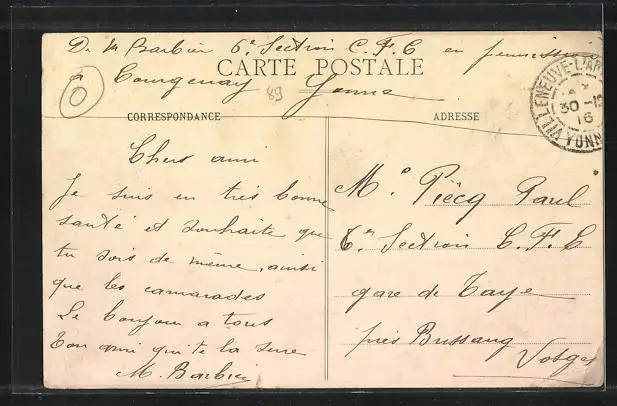 De M Barbier 6e Section C. F. C en permission
CARTE POSTALE
Courgenay Yonne
89
VILLENEUVE-L'AR
30-12
16
YONNE
CORRESPONDANCE
ADRESSE
Cher ami
Je suis en très bonne
santé et souhaite que
tu sois de même, ainsi
que les camarades
Le bonjour a tous
Ton ami qui te la serre
M. Barbier
Mr Piècq Paul
6e Section C. F. C
gare de Taye
près Bussang
Vosges